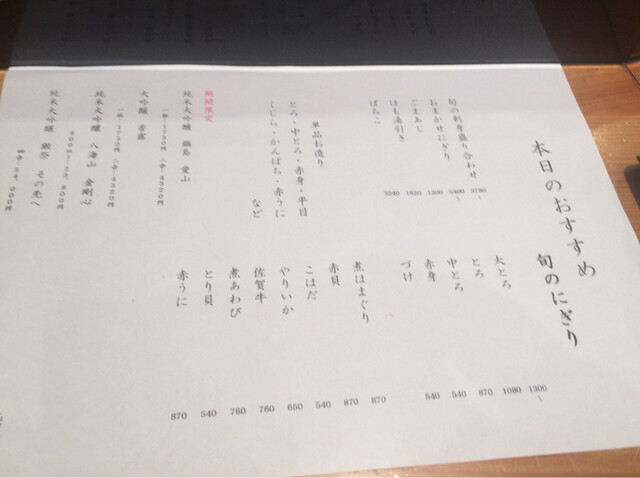 本日のおすすめ
旬の刺身盛り合わせ 3780〜
おまかせにぎり 5400〜
ごまあじ 1300
はも湯引き 1620
ばちこ 3240
単品お造り
とろ・中とろ・赤身・平目
くじら・かんぱち・赤うに
など
期間限定
純米大吟醸 鍋島 愛山
1730円 二合・4320円
大吟醸 香露
1730円 二合・4320円
純米大吟醸 八海山 金剛心
純米大吟醸 獺祭 その先へ
旬のにぎり
大とろ 1300〜
とろ 1080
中とろ 870
赤身 540
づけ 540
煮はまぐり 870
赤貝 870
こはだ 540
やりいか 650
佐賀牛 760
煮あわび 760
とり貝 540
赤うに 870